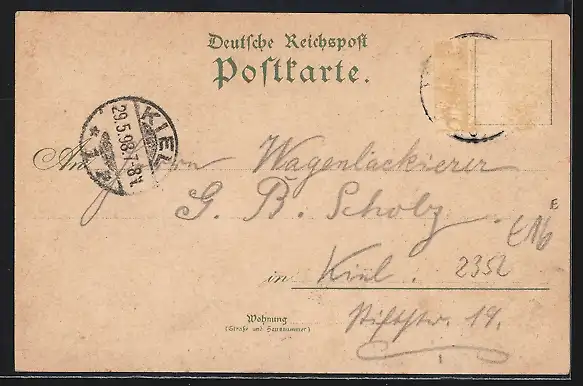 Deutsche Reichspost
Postkarte.
KIEL
29.5.98.7-8V.
* 1 *
An Herrn Wagenlackierer
G. B. Scholz
E
E16
in Kiel. 2352
Wohnung
(Straße und Hausnummer)
Stiftstr. 19.